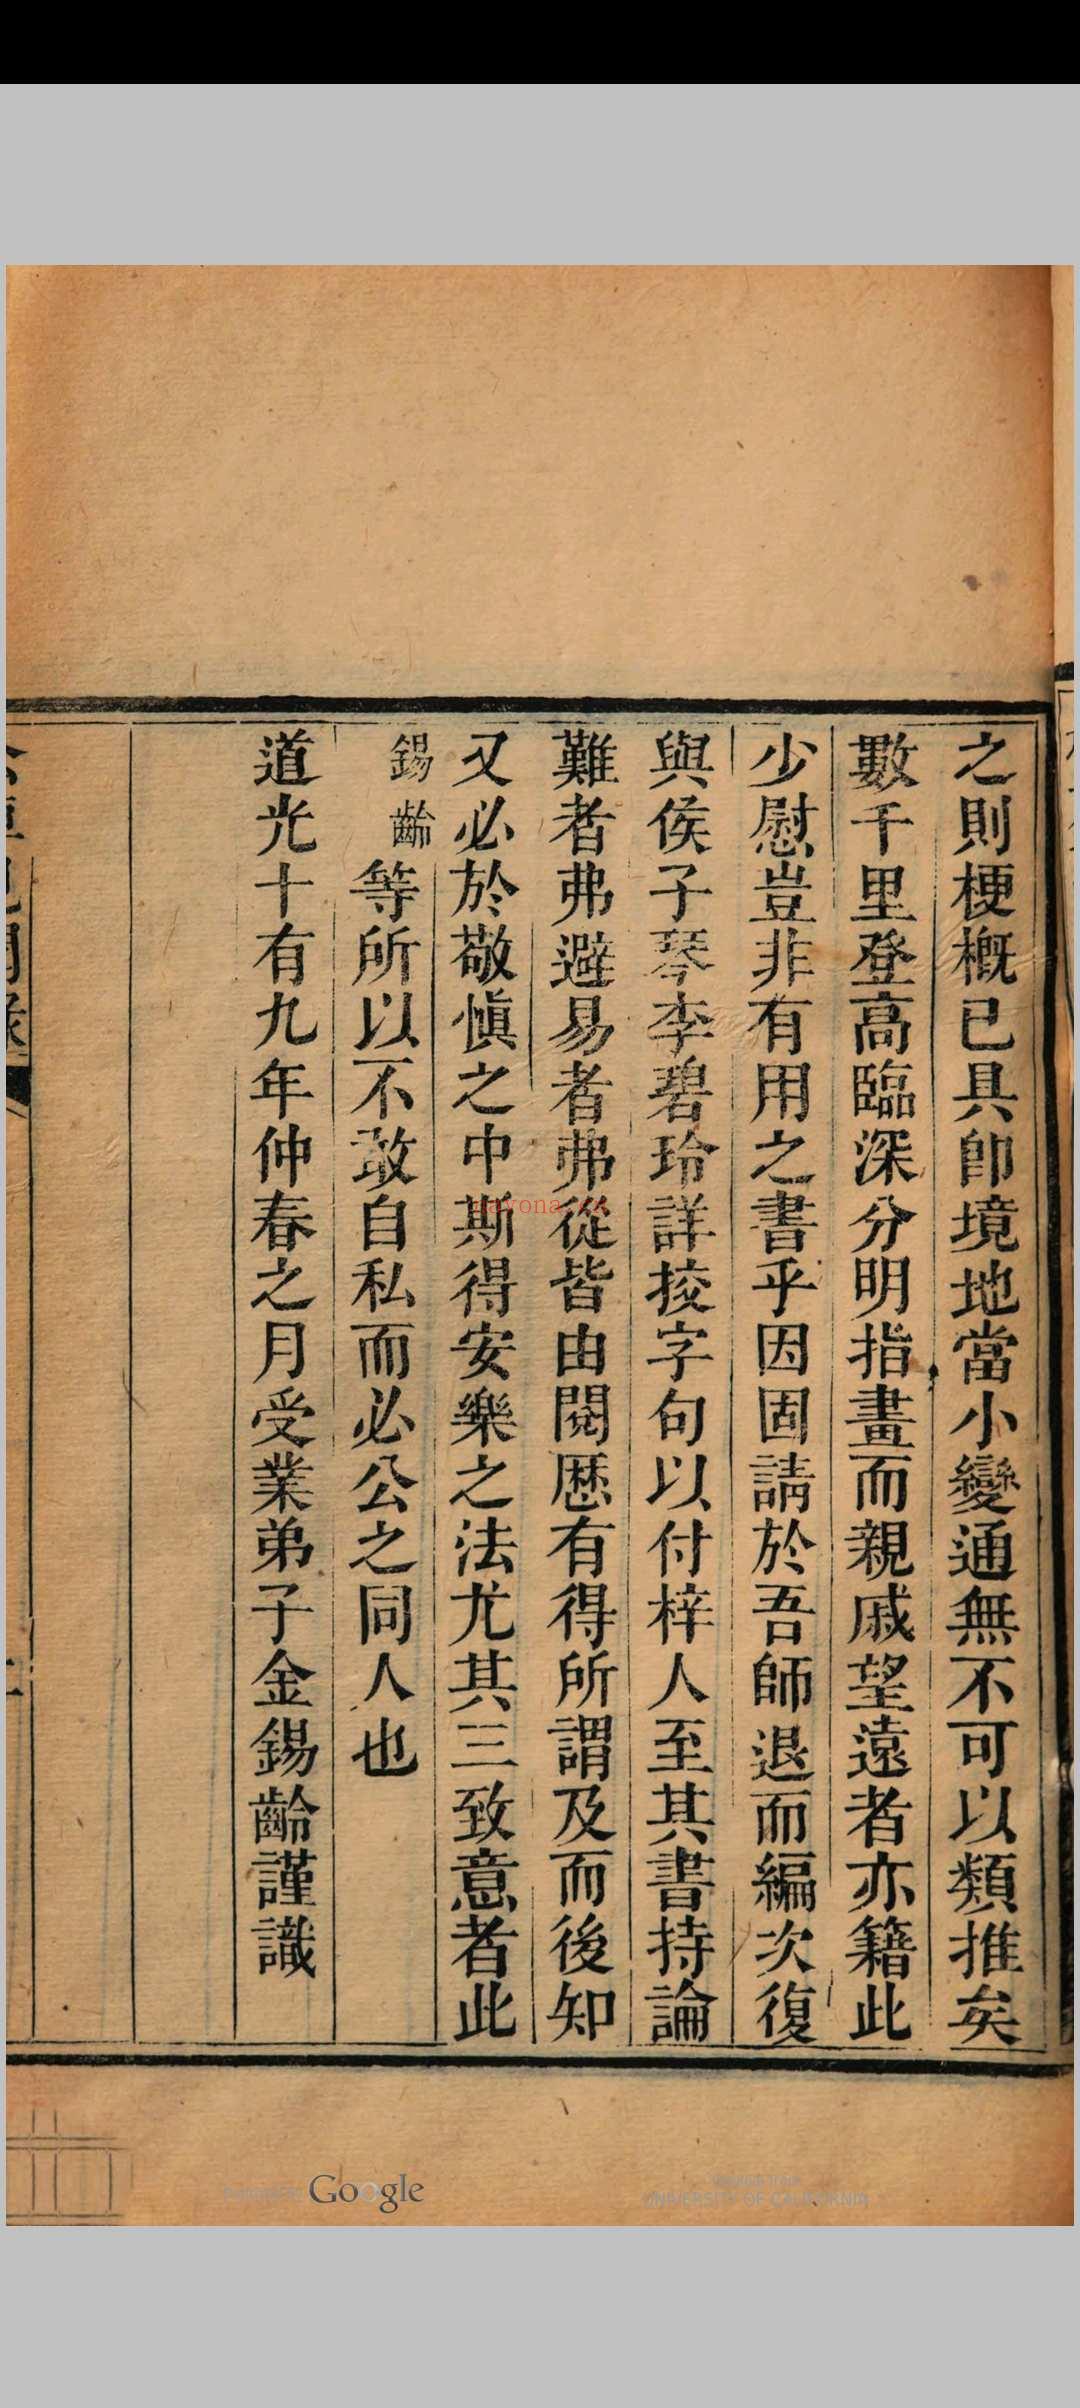 之則梗概已具卽境地當小變通無不可以類推矣
數千里登高臨深分明指畫而親戚望遠者亦籍此
少慰豈非有用之書乎因固請於吾師退而編次復
與侯子琴李碧玲詳挍字句以付梓人至其書持論
難者弗避易者弗從皆由閱歷有得所謂及而後知
又必於敬愼之中斯得安樂之法尤其三致意者此
錫齡等所以不敢自私而必公之同人也
道光十有九年仲春之月受業弟子金錫齡謹識
Google
UNIVERSITY OF CALIFORNIA